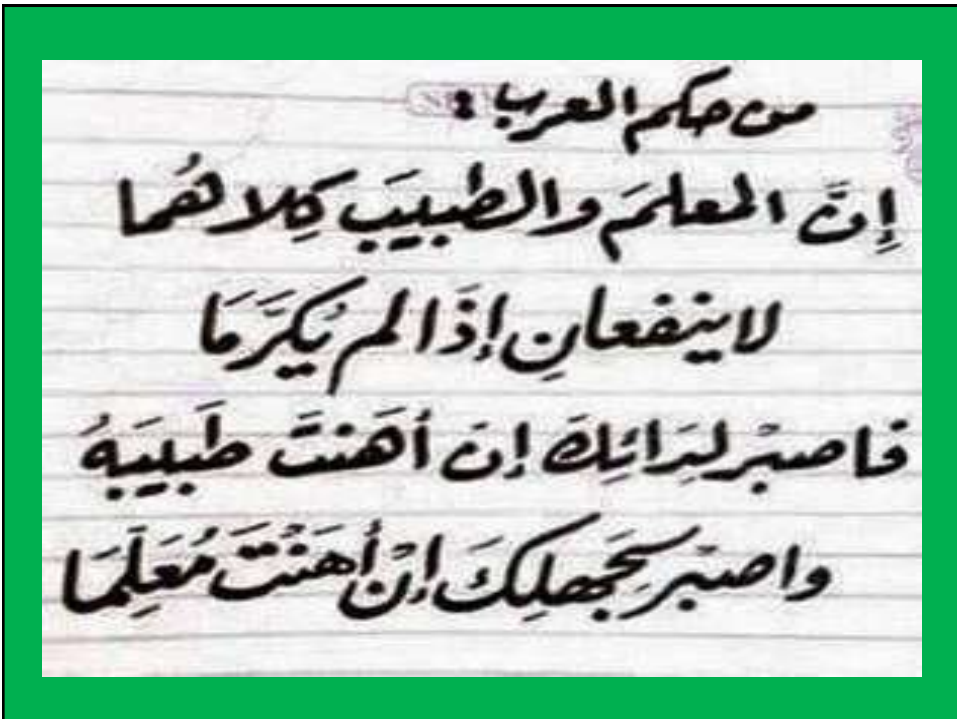 من حكم العرب :
إِنَّ المعلمَ والطبيبَ كِلاهُما
لاينفعانِ إذَا لم يُكَرَمَا
فاصبْر لِدَائِكَ إن أهَنتَ طَبيبَهُ
واصبْر بِجَهلِكَ إنْ أهَنْتَ مُعَلِّمَا